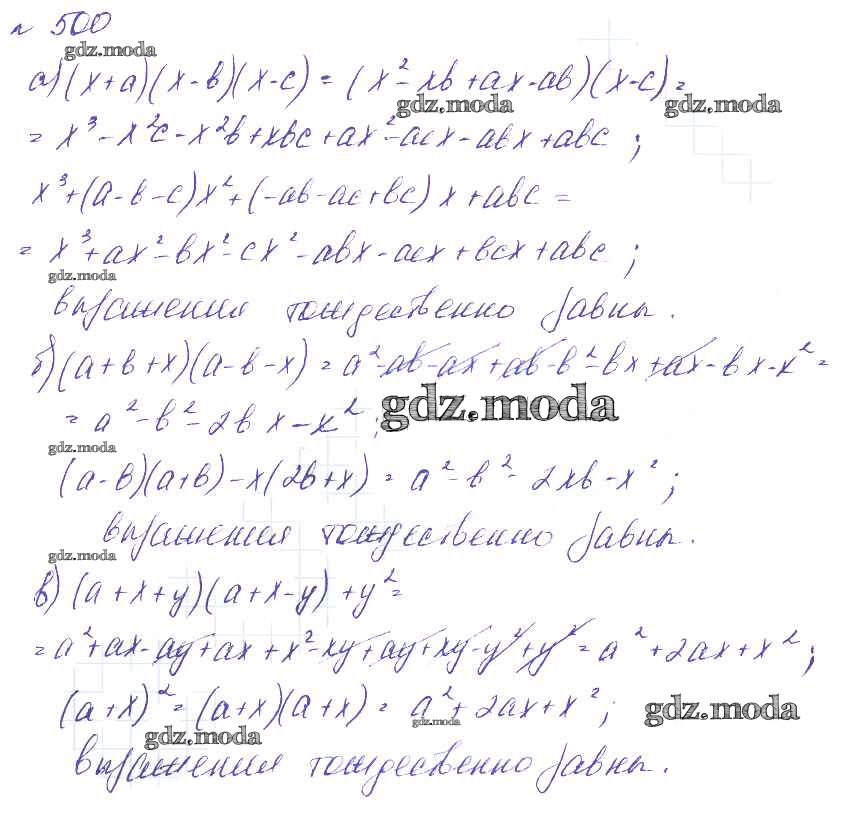 № 500
gdz.moda
а) (x+a)(x-в)(x-c) = (x²-xв+ax-aв)(x-c) =
gdz.moda gdz.moda
= x³-x²c-x²в+xвc+ax²-acx-aвx+aвc ;
x³+(a-в-c)x²+(-aв-ac+вc)x+aвc =
= x³+ax²-вx²-cx²-aвx-acx+вcx+aвc ;
gdz.moda
выражения тождественно равны.
б) (a+в+x)(a-в-x) = a²-aв-ax+aв-в²-вx+ax-вx-x² =
= a²-в²-2вx-x² ;
gdz.moda
gdz.moda
(a-в)(a+в)-x(2в+x) = a²-в²-2xв-x² ;
выражения тождественно равны.
gdz.moda
в) (a+x+y)(a+x-y)+y² =
= a²+ax-ay+ax+x²-xy+ay+xy-y²+y² = a²+2ax+x² ;
(a+x)² = (a+x)(a+x) = a²+2ax+x² ;
gdz.moda gdz.moda
gdz.moda
выражения тождественно равны.